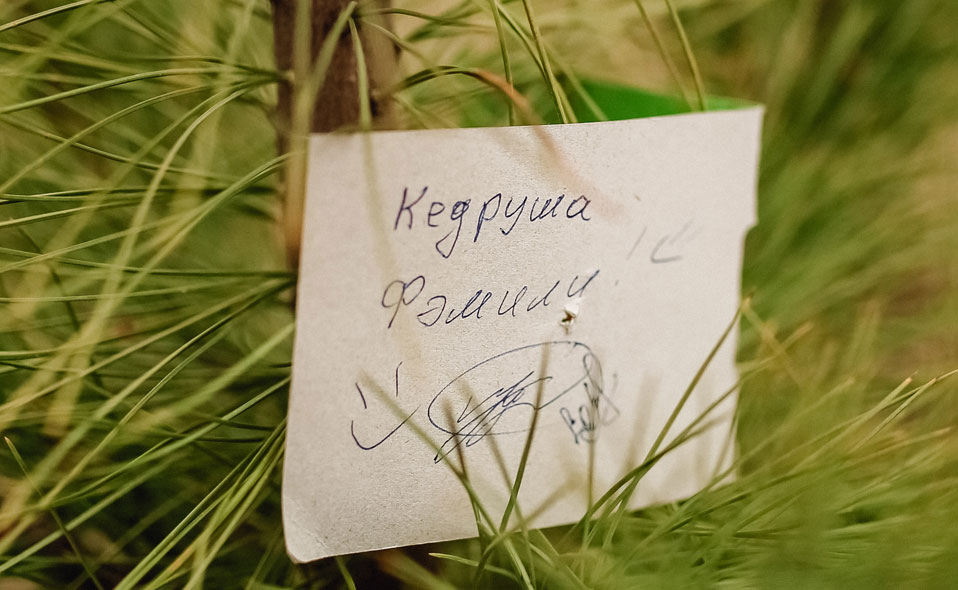 Кедруша
Фэмили!